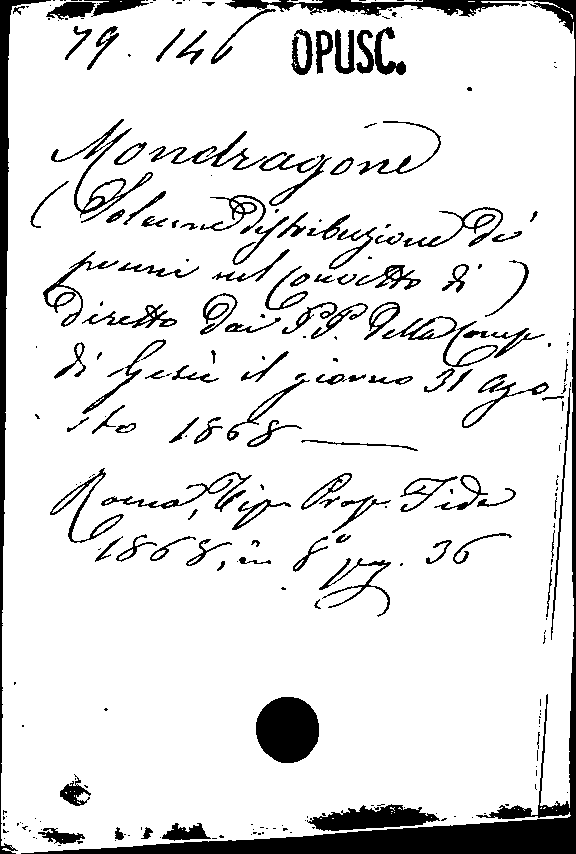 79. 146 OPUSC.
Mondragone
(Solenne distribuzione dei
premi nel Convitto di)
diretto dai P.P. della Comp.
di Gesù il giorno 31 ago-
sto 1868 —
Roma, Tip. Prop. Fide
1868, in 8° pag. 36